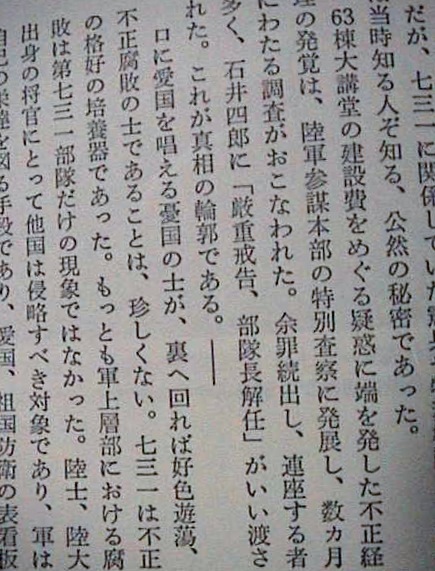 だが、七三一に関係していた
は当時知る人ぞ知る、公然の秘密であった。
63棟大講堂の建設費をめぐる疑惑に端を発した不正経
理の発覚は、陸軍参謀本部の特別査察に発展し、数ヵ月
にわたる調査がおこなわれた。余罪続出し、連座する者
多く、石井四郎に「厳重戒告、部隊長解任」がいい渡さ
れた。これが真相の輪郭である。――
口に愛国を唱える憂国の士が、裏へ回れば好色遊蕩、
不正腐敗の士であることは、珍しくない。七三一は不正
の格好の培養器であった。もっとも軍上層部における腐
敗は第七三一部隊だけの現象ではなかった。陸士、陸大
出身の将官にとって他国は侵略すべき対象であり、軍は
自己の栄達を図る手段であり、愛国、祖国防衛の表看板